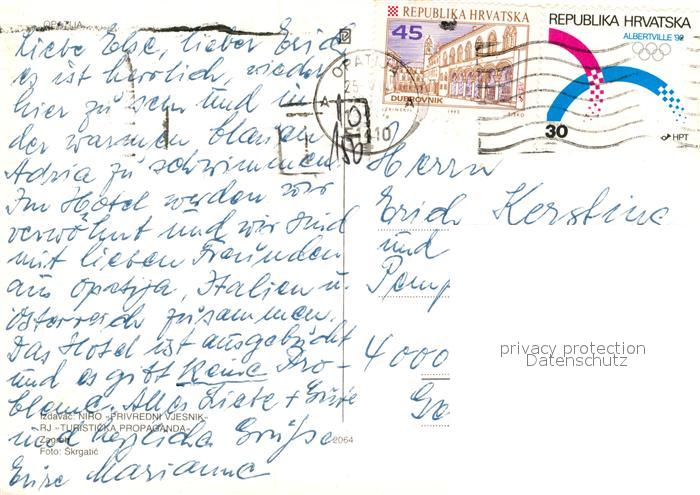 OPATIJA
Liebe Else, lieber Erich,
es ist herrlich, wieder
hier zu sein und in
der warmen blauen
Adria zu schwimmen
Im Hotel werden wir
verwöhnt und wir sind
mit lieben Freunden
aus Opatija, Italien u.
Österreich zusammen.
Das Hotel ist ausgebucht
und es gibt keine Pro-
bleme. Alles Liebe + Gute
und herzliche Grüße
Eure Marianne
Izdavač: NIRO »PRIVREDNI VJESNIK«
RJ »TURISTIČKA PROPAGANDA«
Zagreb
Foto: Škrgatić
2064
REPUBLIKA HRVATSKA
45
DUBROVNIK
REPUBLIKA HRVATSKA
ALBERTVILLE '92
30
HPT
OPATIJA
Herrn
Erich Kersting
und
4000
privacy protection
Datenschutz